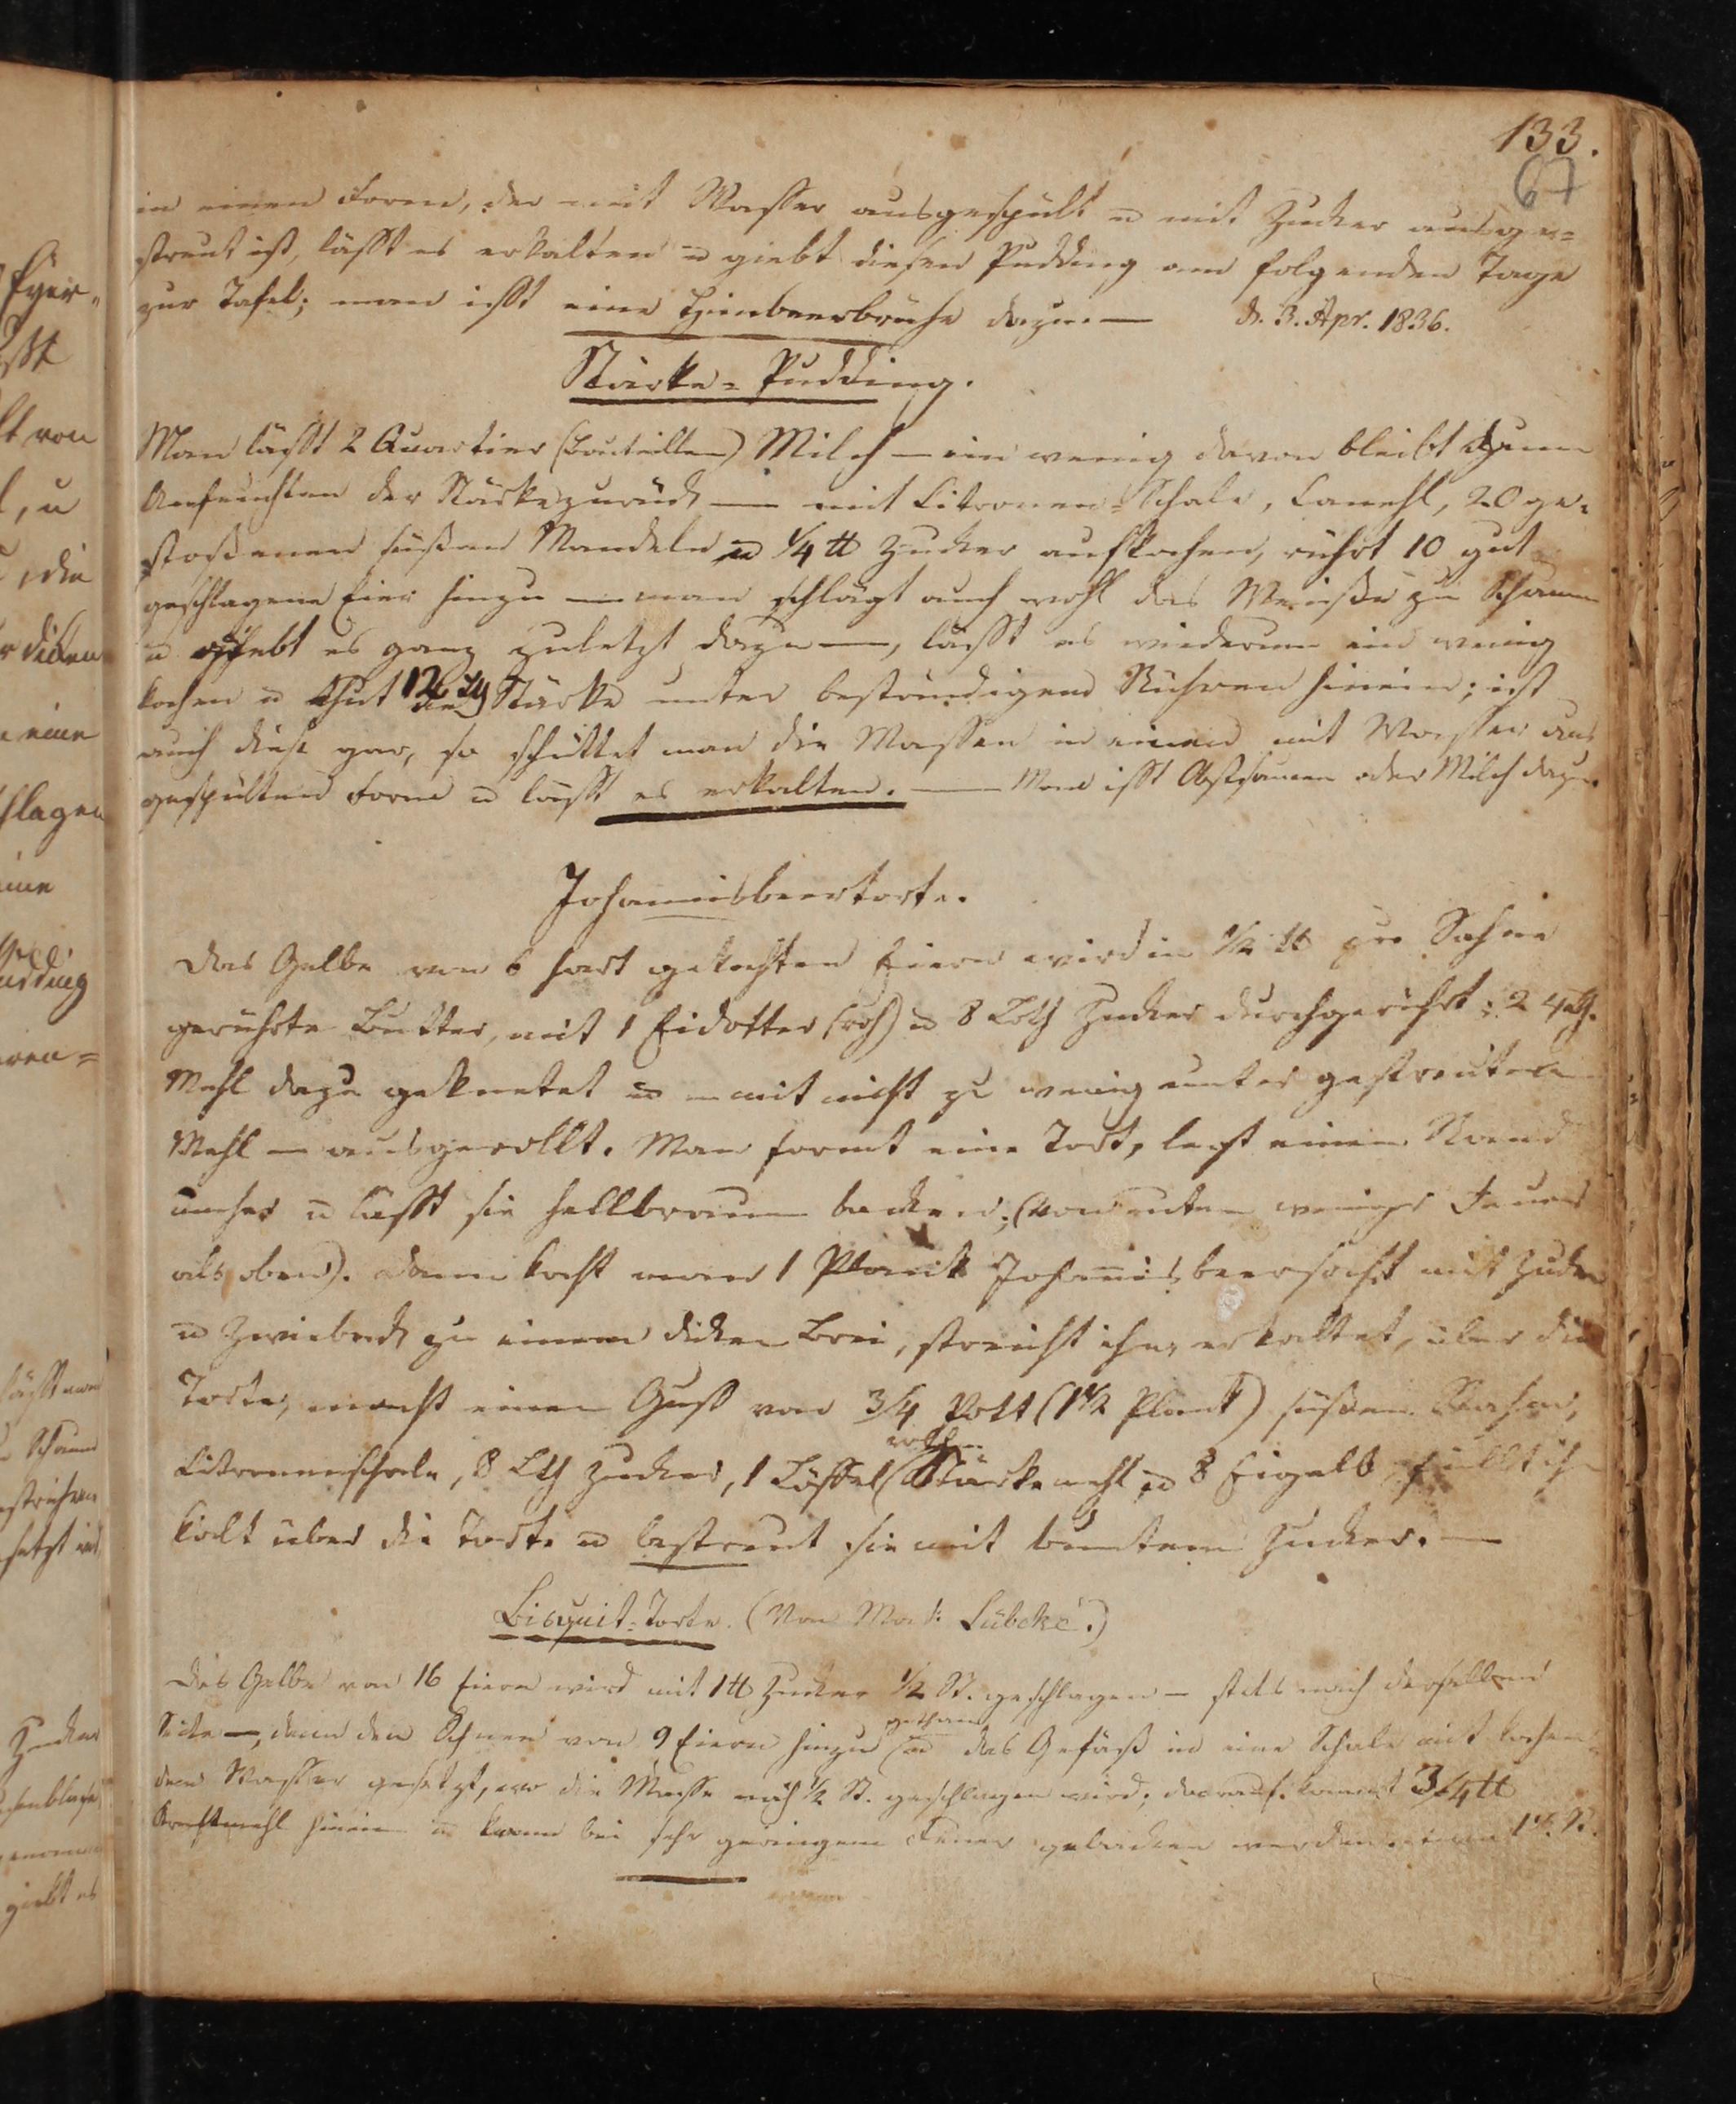 133.
67
in einen Form, der mit Wasser ausgespült u mit Zucker ausge=
streut ist, läßt es erkalten u giebt diesen Pudding am folgenden Tage
zur Tafel; man ißt eine Himbeerbrühe dazu. — d. 3. Apr. 1836.
Stärke-Pudding.
Man läßt 2 Quartier (Bouteillen) Milch — ein wenig davon bleibt zum
Anfeuchten der Stärke zurück — mit Citronen-Schale, Canehl, 20 ge-
stoßenen süßen Mandeln u 1/4 ℔ Zucker aufkochen, rührt 10 gut
geschlagene Eier hinzu — man schlägt auch wohl das Weiße zu Schaum
u giebt es ganz zuletzt dazu —, läßt es wiederum ein wenig
kochen u thut 12 Lth Stärke unter beständigem Rühren hinein; ist
auch diese gar, so schüttet man die Massen in einen mit Wasser aus
gespülten Form u läßt es erkalten. — Man ißt Obstsaucen oder Milch dazu.
Johannisbeertorte.
Das Gelbe von 6 hart gekochten Eiern wird in 1/2 ℔ zu Sahne
gerührte Butter, mit 1 Eidotter (roh) u 8 Loth Zucker durchgerührt; 24 Lth.
Mehl dazu geknetet u — mit nicht zu wenig unter gestreutem
Mehl — ausgerollt. Man formt eine Tort, legt einen Rand
umher u läßt sie hellbraun backen; (von unten weniger Feuer
als oben). Dann kocht man 1 Plank Johannisbeersaft mit Zucker
u Zwieback zu einem dicken Brei, streicht ihn, erkaltet, über die
Torte, macht einen Guß von 3/4 Pott (1 1/2 Plank) süßen Rahm,
Citronenschale, 8 Lth Zucker, 1 Löffel Stärkemehl u 8 Eigelb, füllt ihn
kalt über die Torte u bestreut sie mit buntem Zucker. —
Bisquit-Torte. (Von Mad: Lübcke.)
Das Gelbe von 16 Eiern wird mit 1 ℔ Zucker 1/2 St. geschlagen — stets nach derselben
Seite —, dann den Schnee von 9 Eiern hinzu gethan u das Gefäß in eine Schale mit kochen-
dem Wasser gesetzt, wo die Masse noch 1/2 St. geschlagen wird; darauf kommt 3/4 ℔
Kraftmehl hinein u kann bei sehr geringem Feuer gebacken werden